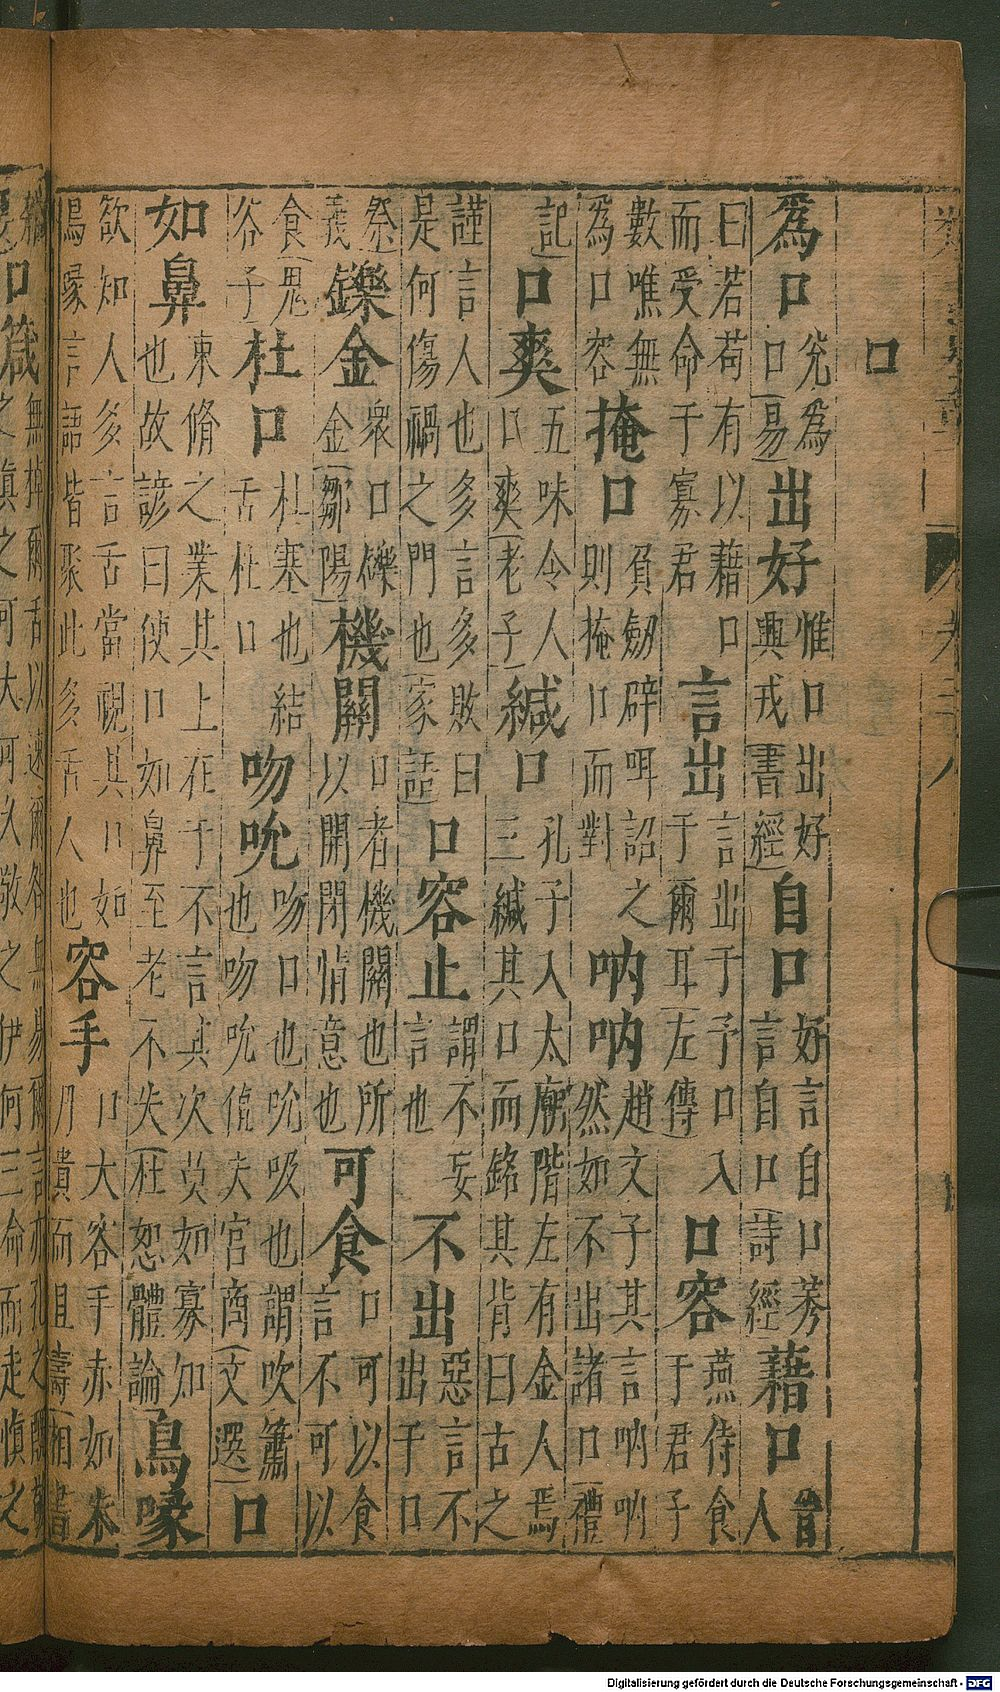 口
為口 兊為口易 出好 惟口出好興戎書經 自口 好言自口莠言自口詩經 藉口 晉人
曰若苟有以藉口而受命于寡君 言出 言出于予口入于爾耳左傳 口容 燕侍食于君子
數噍無為口容 掩口 負劔辟咡詔之則掩口而對 吶吶 趙文子其言吶吶然如不出諸口禮
記 口爽 五味令人口爽老子 緘口 孔子入太廟階左有金人焉三緘其口而銘其背曰古之
謹言人也多言多敗曰是何傷禍之門也家語 口容止 謂不妄言也 不出 惡言不出乎口
祭義 鑠金 衆口礫金鄒陽 機關 口者機關也所以開閉情意也 可食 口可以食言不可以
食鬼谷子 杜口 杜塞也結舌杜口 吻吮 吻口也吮吸也謂吹簫也吻吮值夫宮商文選 口
如鼻 東脩之業其上在于不言其次莫如寡知也故諺曰使口如鼻至老不失杜恕體論 鳥喙
欲知人多言舌當視其口如鳥喙言語皆聚此多舌人也 容手 口大容手赤如朱丹貴而且壽相書
口箴 無掉爾舌以速爾咎無易爾言亦孔之醜之慎之可大可久敬之伊何三命而走慎之
Digitalisierung gefördert durch die Deutsche Forschungsgemeinschaft - DFG